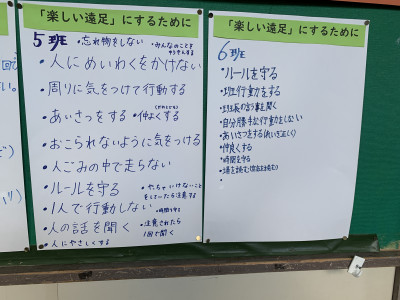 「楽しい遠足」にするために
5班 ・忘れ物をしない ・みんなのことを
・人にめいわくをかけない
・周りに気をつけて行動する
・あいさつをする ・仲よくする
・おこられないように気をつける
・人ごみの中で走らない
・ルールを守る ・やっちゃいけないこと
をしていたら注意する
・1人で行動しない ・時間を守る
・人の話を聞く ・注意されたら
1回で聞く
・人にやさしくする
「楽しい遠足」にするために
6班
・ルールを守る
・班行動をする
・班長の言う事を聞く
・自分勝手な行動をしない
・あいさつをする(礼ぎ正しく)
・仲良くする
・時間を守る
・場を読む